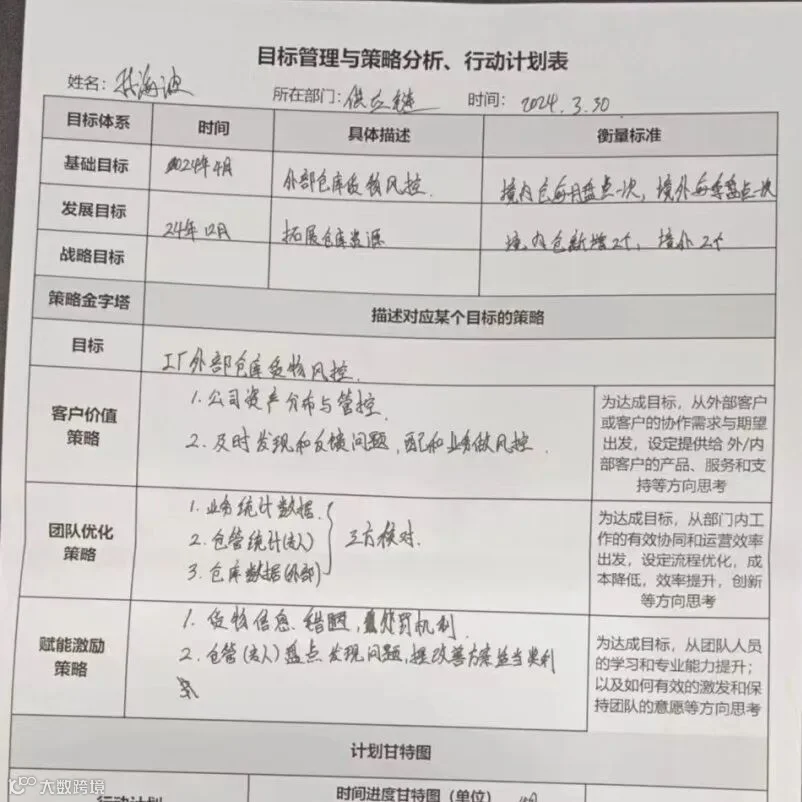 目标管理与策略分析、行动计划表
姓名: 林海迪 所在部门: 供应链 时间: 2024.3.30
目标体系 时间 具体描述 衡量标准
基础目标 2024年4月 外部仓库货物风控. 境内仓每月盘点一次, 境外每季盘点一次
发展目标 24年12月 拓展仓库资源 境内仓新增2个, 境外2个
战略目标
策略金字塔 描述对应某个目标的策略
目标 工厂外部仓库货物风控.
客户价值策略
1. 公司资产分布与管控.
2. 及时发现和反馈问题, 配和业务做风控.
为达成目标，从外部客户
或客户的协作需求与期望
出发，设定提供给 外/内
部客户的产品、服务和支
持等方向思考
团队优化策略
1. 业务统计数据.
2. 仓管统计(法人)
3. 仓库数据(外部)
三方核对.
为达成目标，从部门内工
作的有效协同和运营效率
出发，设定流程优化，成
本降低，效率提升，创新
等方向思考
赋能激励策略
1. 货物信息 处罚机制.
2. 仓管(法人)盘点发现问题, 提改善方案
为达成目标，从团队人员
的学习和专业能力提升；
以及如何有效的激发和保
持团队的意愿等方向思考
计划甘特图
行动计划 时间进度甘特图（单位）
大数跨境